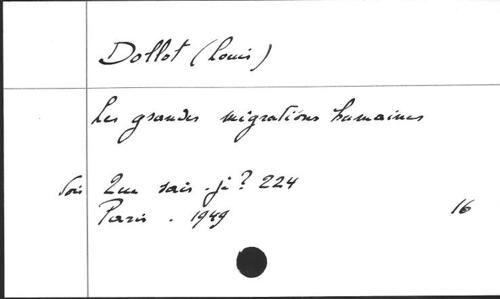 Dollot (Louis)
Les grandes migrations humaines
Voir Que sais-je? 224
Paris. 1949 16